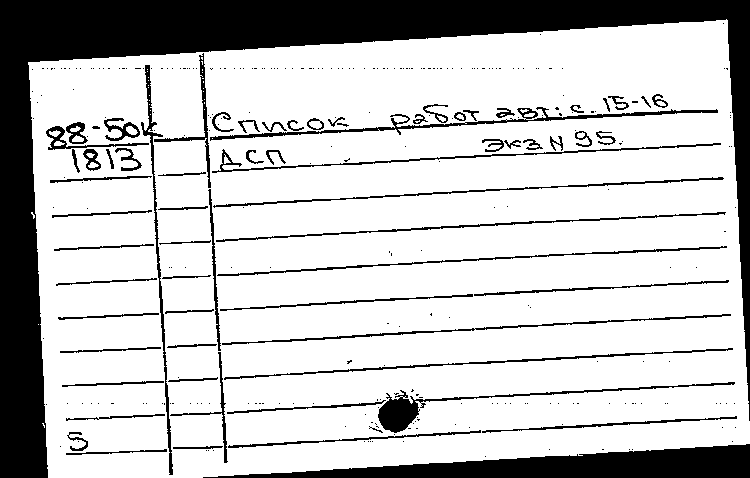 88-50к Список работ авт: с. 15-16
1813 ДСП Экз N 95.
S